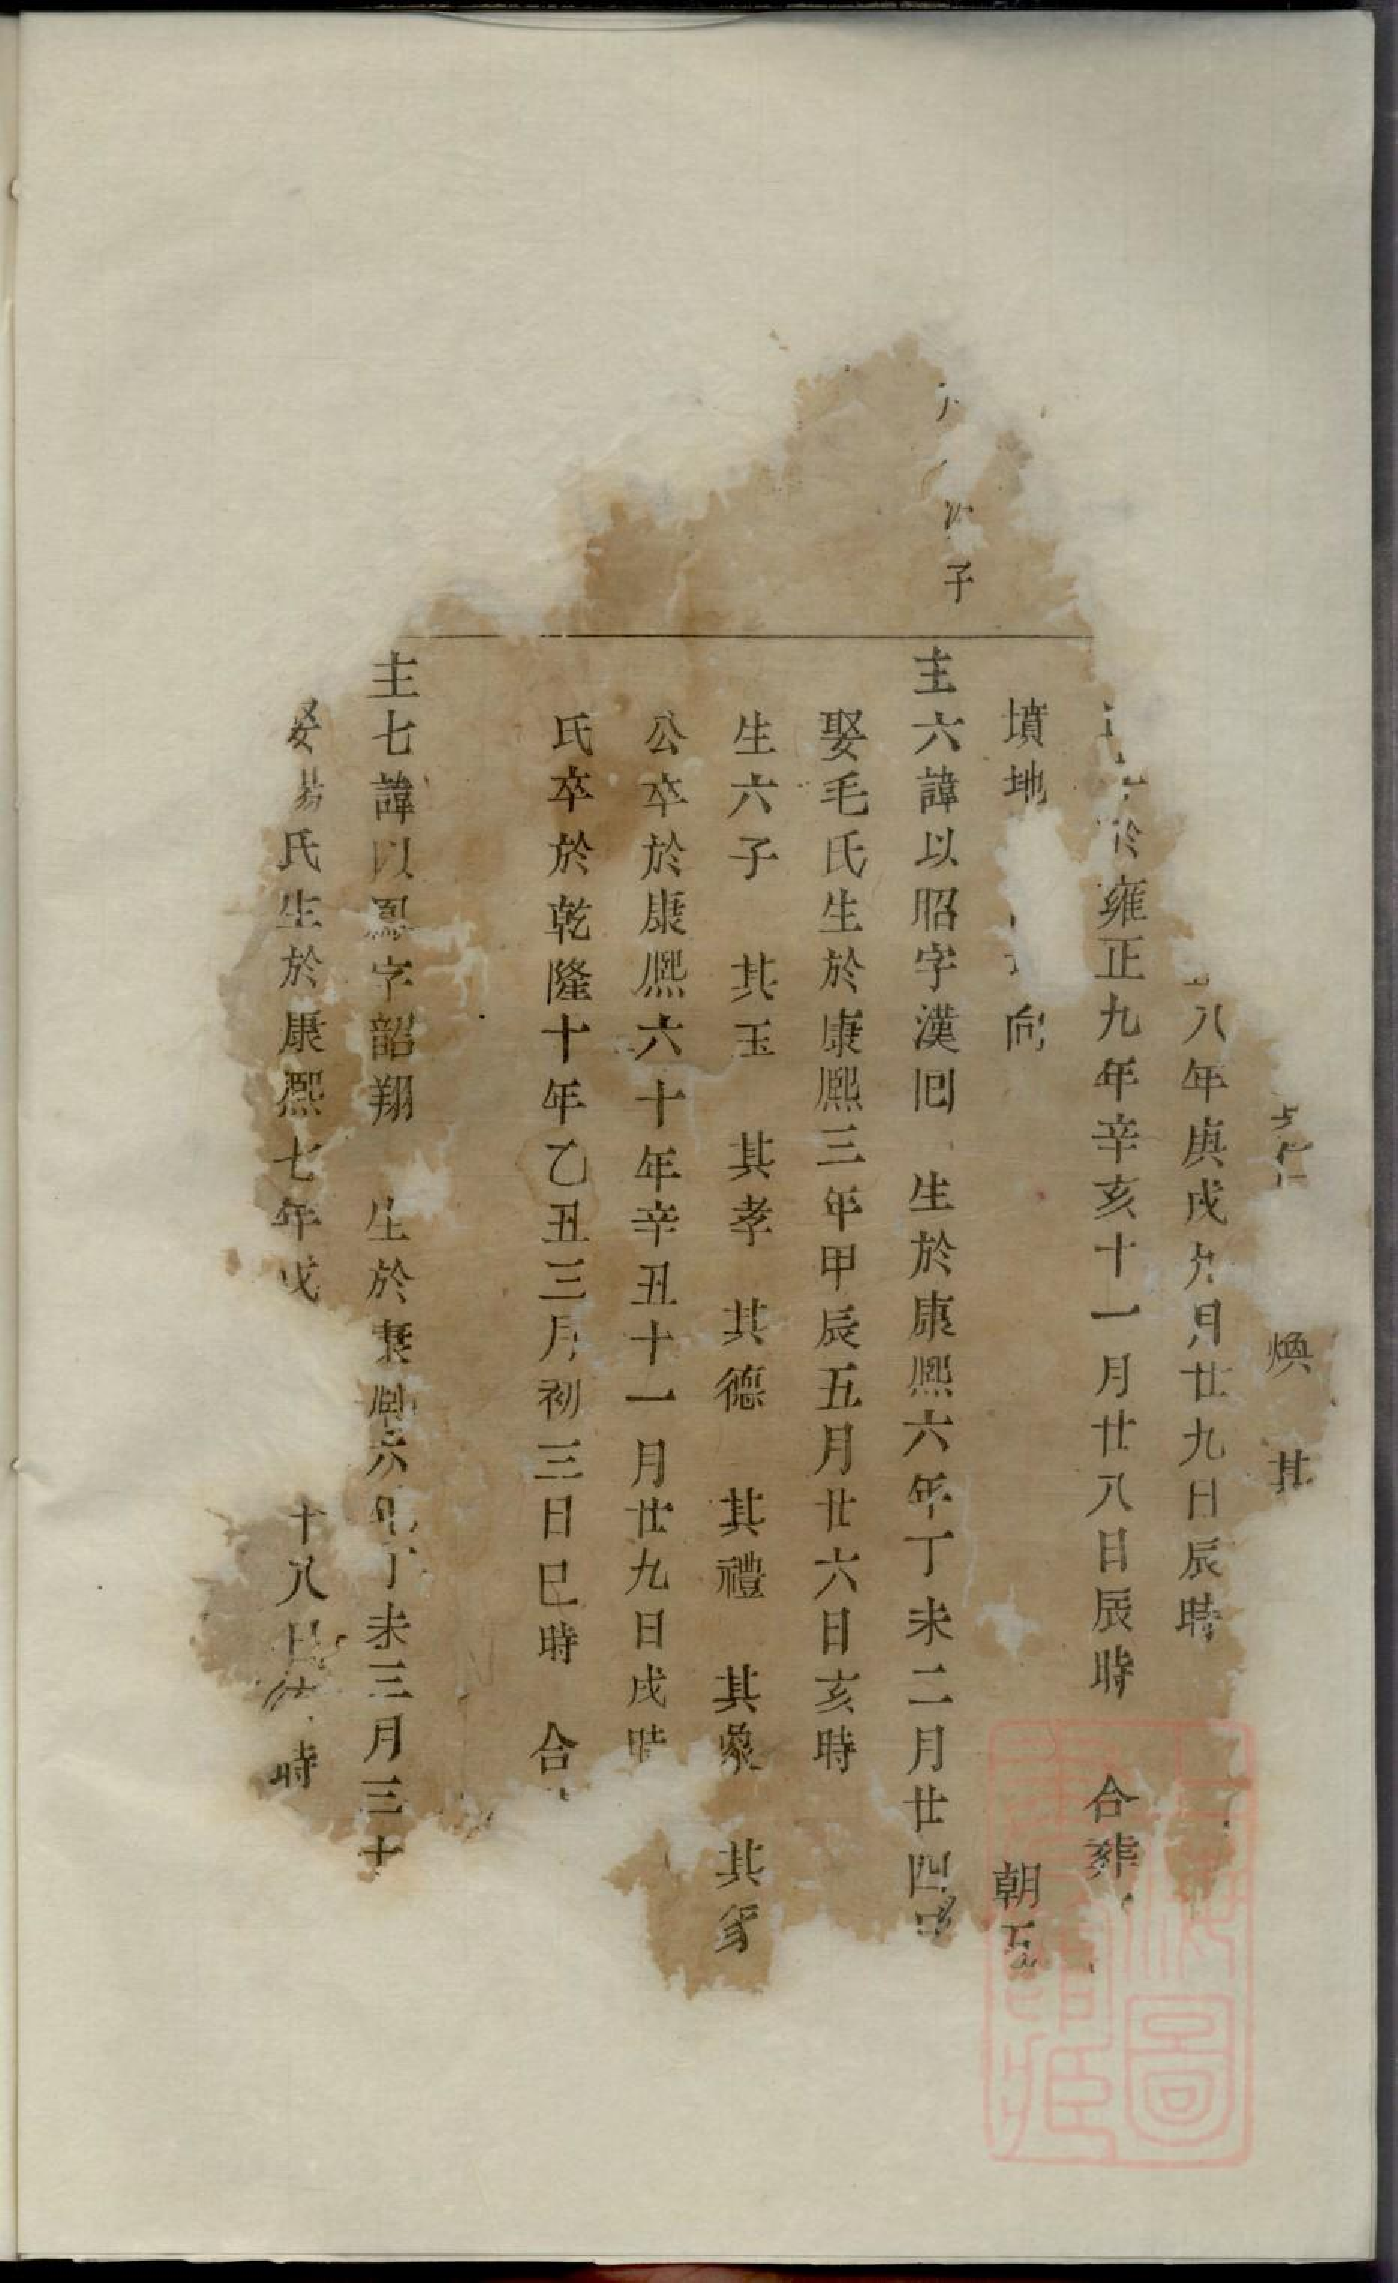 煥 其
八年庚戌九月廿九日辰時
於雍正九年辛亥十一月廿八日辰時 合葬
墳地 向 朝
子
主六諱以昭字漢回 生於康熙六年丁未二月廿四
娶毛氏生於康熙三年甲辰五月廿六日亥時
生六子 其玉 其孝 其德 其禮 其象 其
公卒於康熙六十年辛丑十一月廿九日戌時
氏卒於乾隆十年乙丑三月初三日巳時 合
主七諱以鳳字韶翔 生於康熙六年丁未三月三十
娶易氏生於康熙七年戊 十八日 時
圖